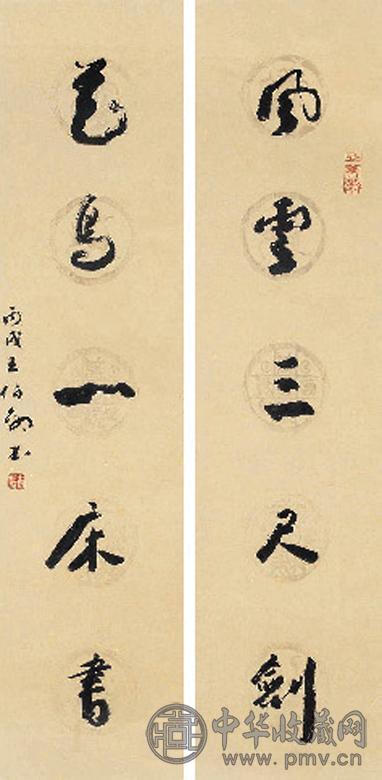 風雲三尺劍
花鳥一床書
丙戌王伯勛書
中华收藏网
www.pmv.cn